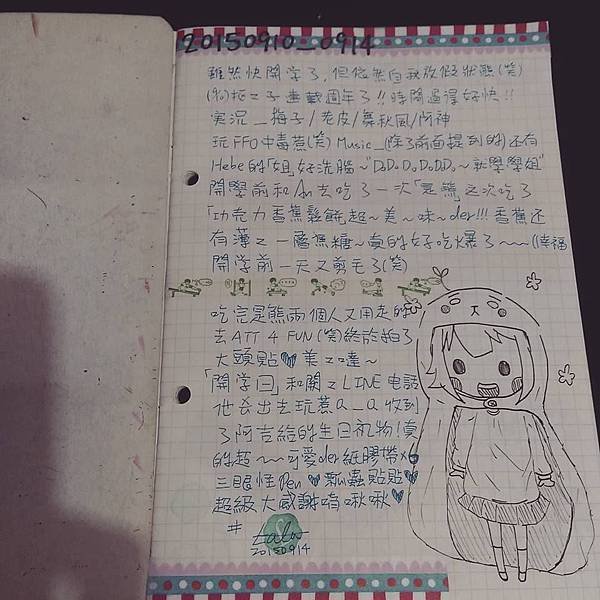 20150910_0914
雖然快開學了，但依然自我放假狀態(笑)
連載週年了!!時間過得好快!!
實況_梅子/老皮/舞秋風/阿神
玩FFO中毒惹(笑) Music_(除了前面提到的)還有
Hebe的「姐」好洗腦~"DoDoDoDoDo~就學學姐"
開學前和An去吃了一次「是熊」這次吃了
「巧克力香蕉鬆餅」超~美~味~der!!!香蕉還
有薄ㄛ一層焦糖~真的好吃爆了~~~(幸福
開學前一天又剪毛了(笑)
吃完是熊兩個人又用走的
去ATT 4 FUN(笑)終於拍了
大頭貼♥美ㄛ噠~
「開學日」和關ㄛLINE電話
他会出去玩惹Q_Q收到
了阿吉給的生日礼物!真
的超~~~可愛der紙膠帶x6
三眼怪Pen♥瓢蟲貼貼♥
超級大感謝唷啾啾♥
#
20150914